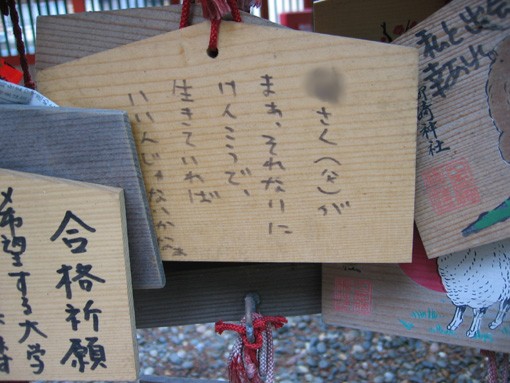 さく(父)が
まぁ、それなりに
けんこうで、
生きていれば
いいんじゃないかなぁ
合格祈願
希望する大学
私と出会
幸あれ
神社